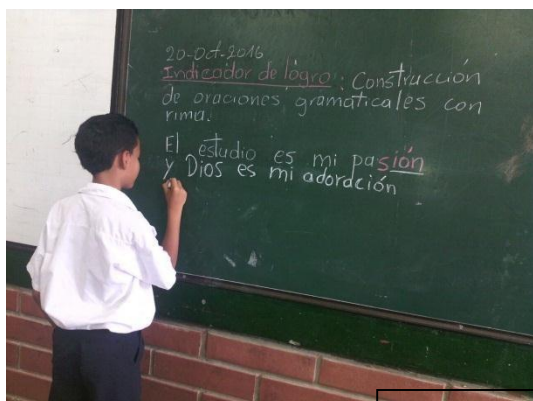 20-Oct-2016
Indicador de logro: Construcción
de oraciones gramaticales con
rima.
El estudio es mi pasión
y Dios es mi adoración